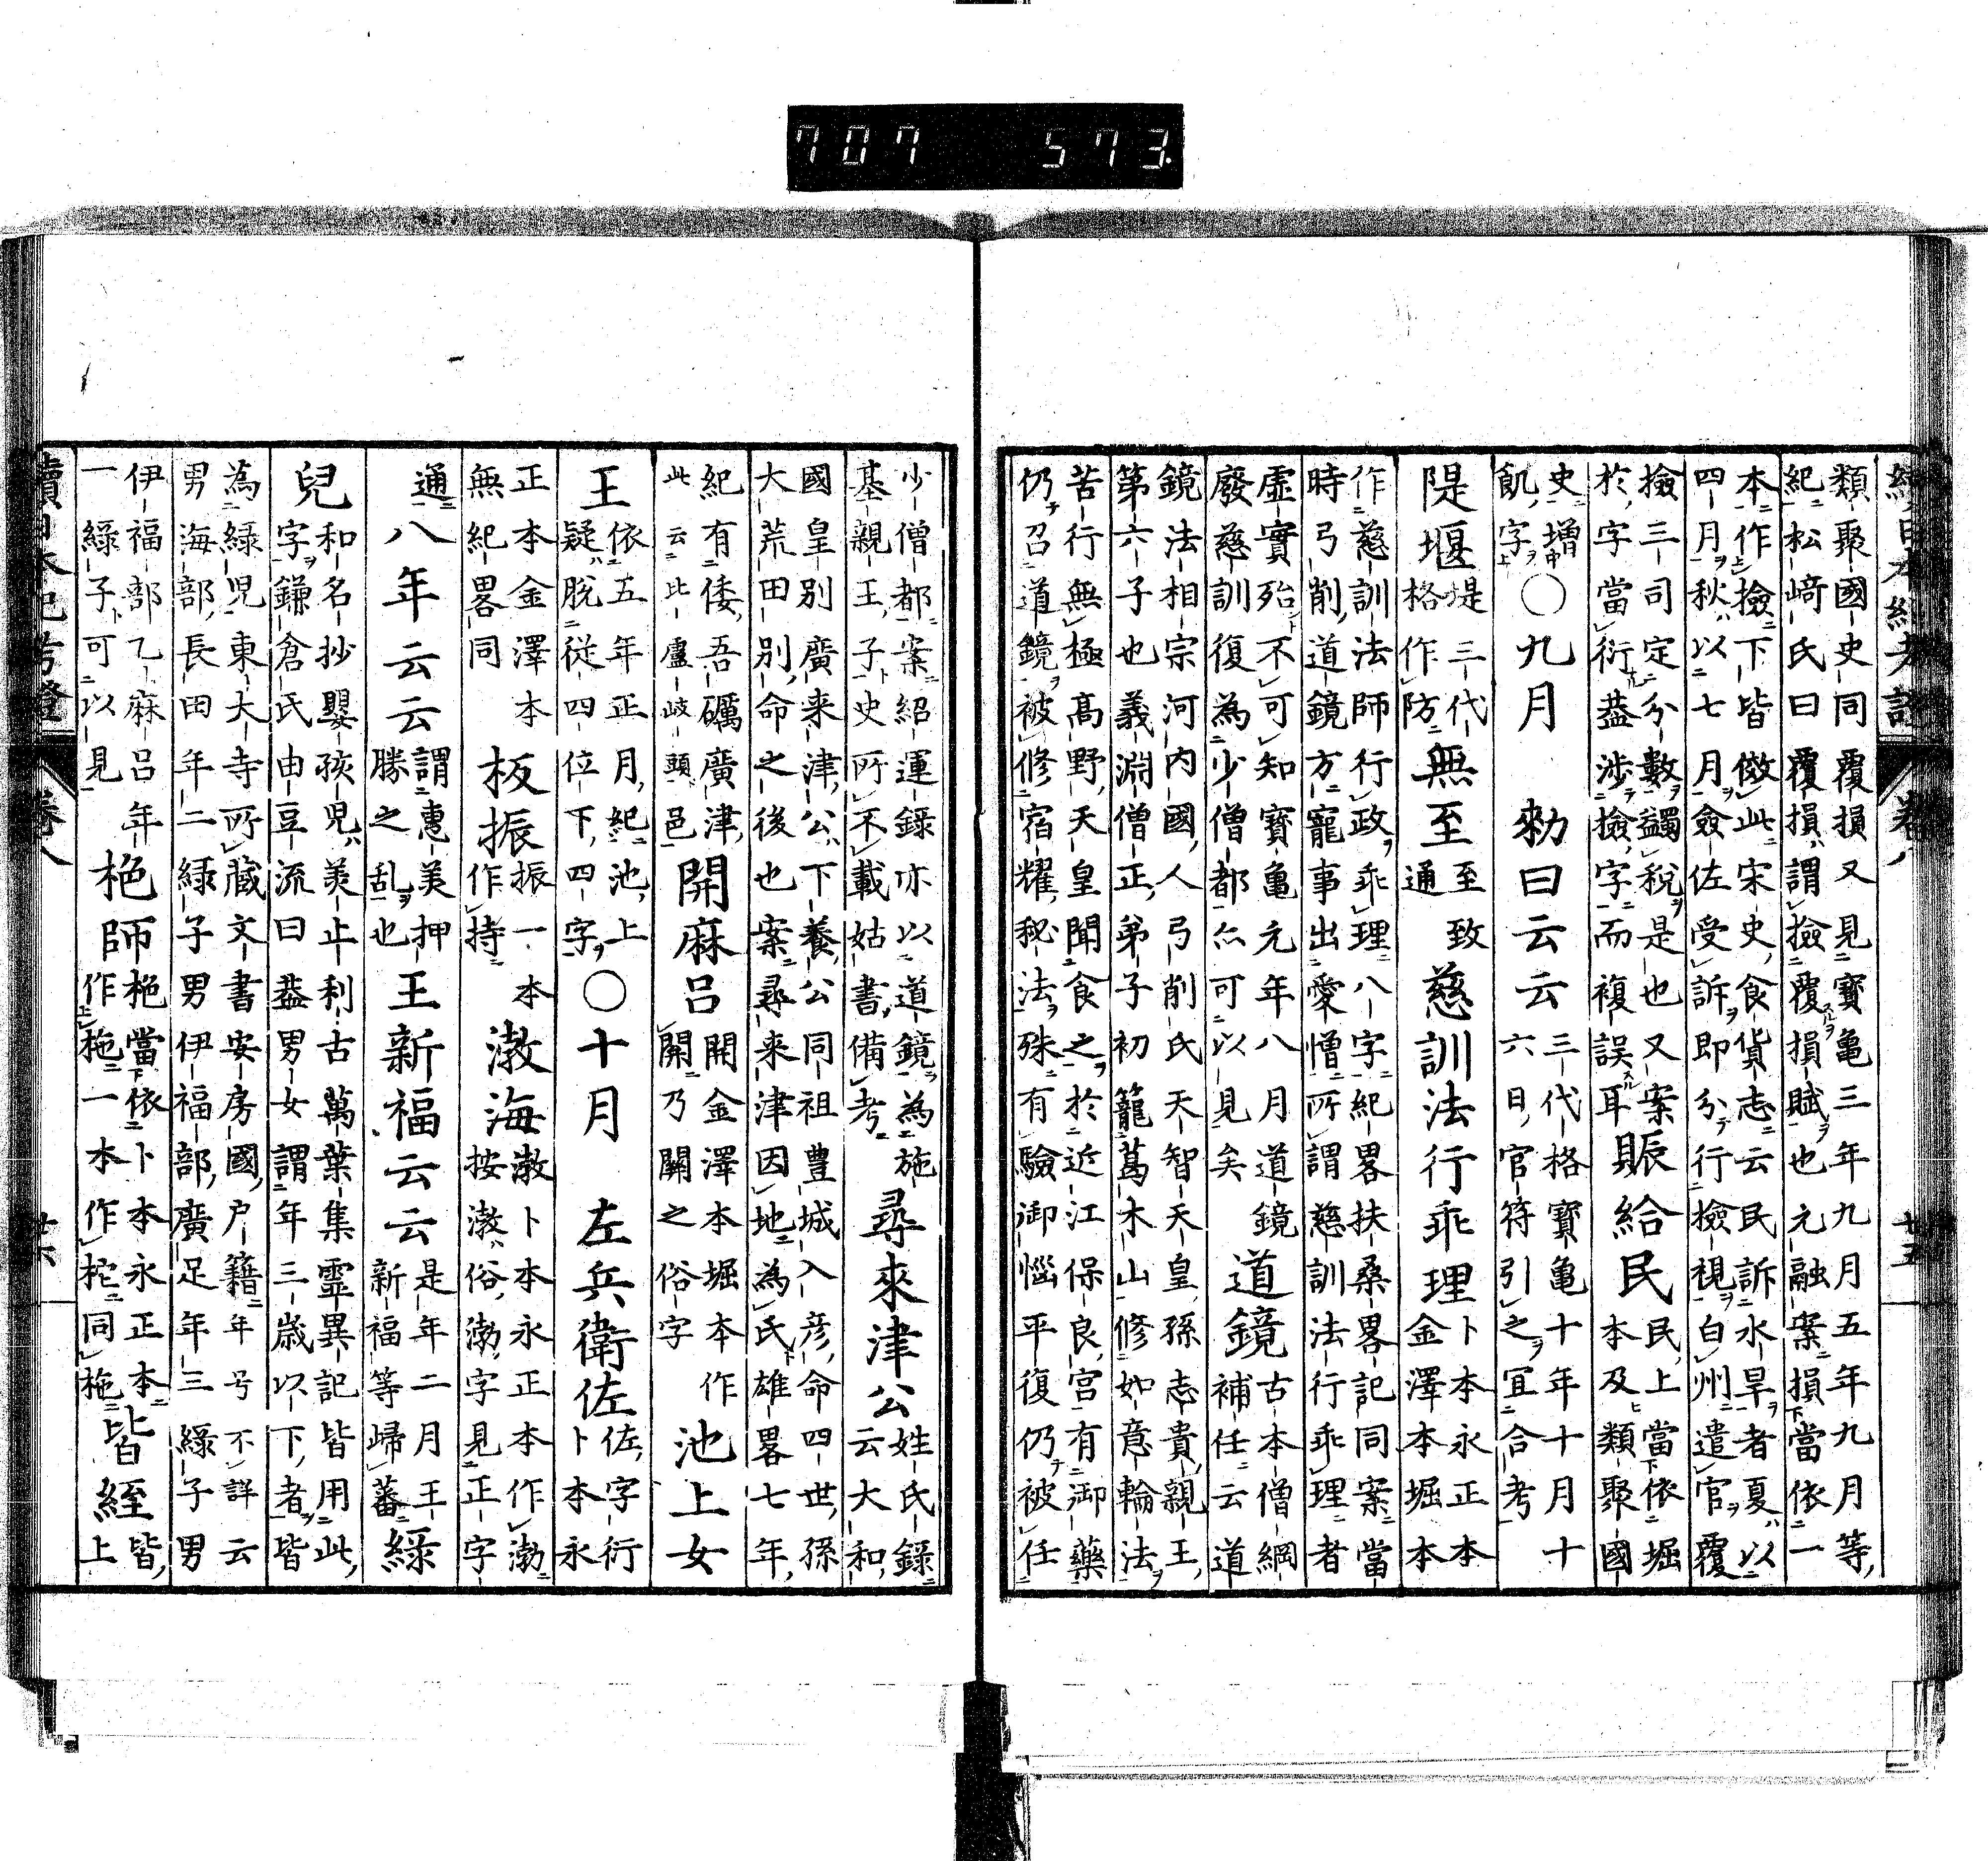 707 573.
續日本紀考證 卷八 廿五
類聚國史同覆損又見寶亀三年九月五年九月等、
紀松﨑氏曰覆損謂撿覆損賦也元融案損當依一
本作撿下皆傚此宋史食貨志云民訴水旱者夏以
四月秋以七月僉佐受訴即分行撿視白州遣官覆
撿三司定分數蠲税是也又案賑給民民上當依堀本及類聚國
於字當衍葢涉撿字而複誤耳
史增飢字〇九月 勑曰云云三代格寶亀十年十月十六日官符引之宜合考
隄堰堤三代格作防無至至致通慈訓法行乖理卜本永正本金澤本堀本
作慈訓法師行政乖理八字紀畧扶桑畧記同案當
時弓削道鏡方寵事出愛憎所謂慈訓法行乖理者
虛實殆不可知寶亀元年八月道鏡道鏡古本僧綱補任云道
廢慈訓復為少僧都亦可以見矣
鏡法相宗河内國人弓削氏天智天皇孫志貴親王
第六子也義淵僧正弟子初籠葛木山修如意輪法
苦行無極髙野天皇聞食之於近江保良宮有御藥
仍召道鏡被修宿耀秘法殊有驗御惱平復仍被任
少僧都案紹運錄亦以道鏡為施尋來津公姓氏錄云大和
基親王子史所不載姑書備考
國皇別廣来津公下養公同祖豊城入彦命四世孫
大荒田別命之後也案尋来津因地為氏雄畧七年
紀有倭吾礪廣津此云比盧岐頭邑開麻呂開金澤本堀本作開乃闗之俗字池上女
王依五年正月紀池上疑脱從四位下四字〇十月 左兵衛佐佐字衍卜本永
正本金澤本無紀畧同板振振一本作持渤海渤卜本永正本作渤按渤俗渤字見正字
通八年云云謂惠美押勝之乱也王新福云云是年二月王新福等歸蕃緑
兒和名抄嬰孩兒美止利古萬葉集霊異記皆用此
字鎌倉氏由豆流曰葢男女謂年三歳以下者皆
為緑兒東大寺所藏文書安房國户籍年号不詳云
男海部長田年二緑子男伊福部廣足年三緑子男
伊福部乙麻呂年一緑子可以見栬師栬當依卜本永正本作㧞一本作柁同皆絰皆上
續日本紀考證 卷八 廿六